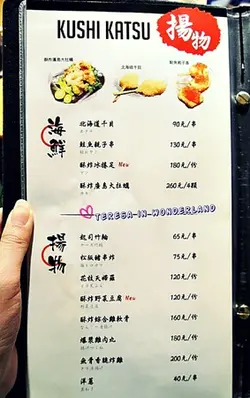 KUSHI KATSU
揚物
北海道干貝
海鮮
北海道干貝 90元/串
鮭魚親子串 130元/串
酥炸冰捲尾 New 180元/份
酥炸廣島大牡蠣 260元/4顆
TERESA-IN-WONDERLAND
揚物
起司竹輪 65元/串
松阪豬串炸 75元/串
花枝天婦羅 120元/份
酥炸野菜豆腐 New 120元/份
酥炸綜合雞軟骨 160元/份
爆漿雞肉丸 180元/份
魚骨香燒炸雞 200元/份
洋蔥 40元/串